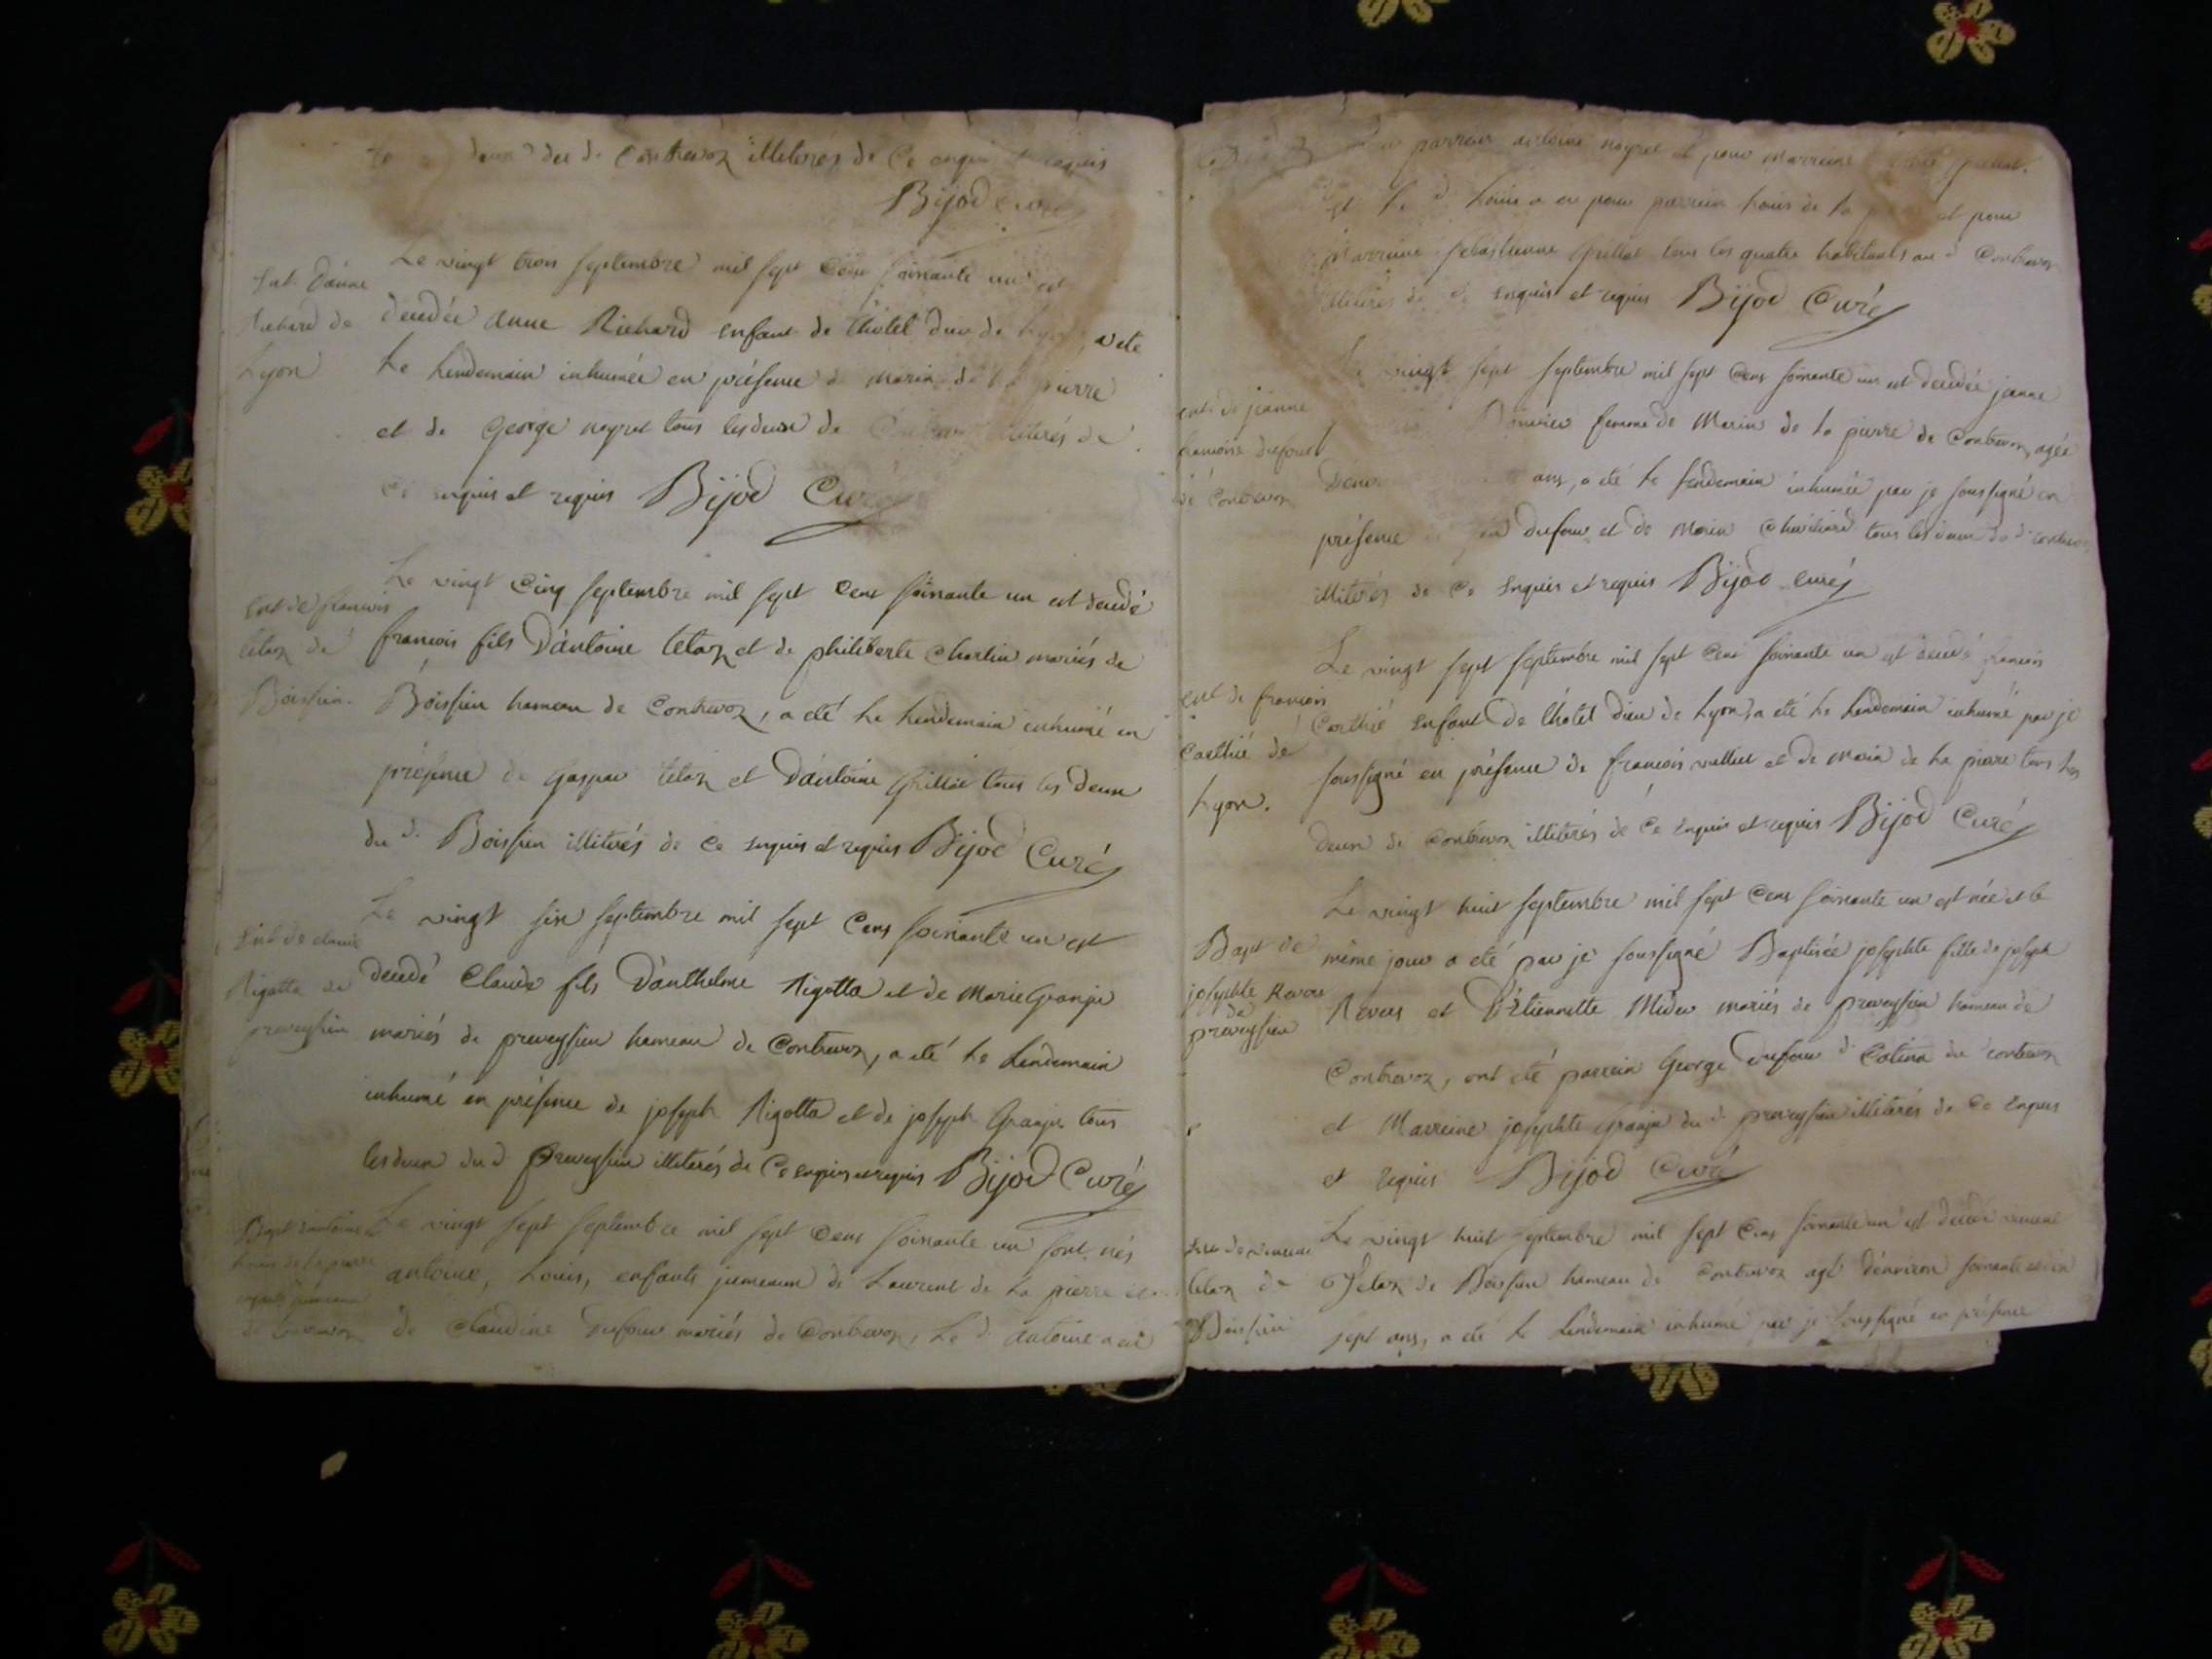 deux du d. Contrevoz illiterés de Ce enquis et requis
Bijod curé
Ent. D'anne
Richard de
Lyon
Le vingt trois septembre mil sept Cent soixante un est
decedée anne Richard enfant de l'hotel dieu de Lyon, a eté
Le Lendemain inhumée en présence de Marin de La pierre
et de George neyret tous les deux de Contrevoz illiterés de
Ce enquis et requis Bijod Curé
Ent de francois
letoz de
Boissieu.
Le vingt Cinq septembre mil sept Cent soixante un est decedé
francois fils D'antoine letoz et de philiberte Charlin mariés de
Boissieu hameau de Contrevoz, a eté Le Lendemain inhumé en
présence de Gaspar letoz et D'antoine Grillat tous les deux
du d. Boissieu illiterés de Ce enquis et requis Bijod Curé
Ent de claude
Rigotta de
preveyssieu
Le vingt six septembre mil sept Cens soixante un est
decedé Claude fils D'anthelme Rigotta et de Marie Granje
mariés de preveyssieu hameau de Contrevoz, a eté Le Lendemain
inhumé en présence de joseph Rigotta et de joseph Granje tous
les deux du d. preveyssieu illiterés de Ce enquis et requis Bijod Curé
Bapt d'antoine
Louis de La pierre
jumeaux
de Contrevoz
Le vingt sept septembre mil sept Cens soixante un sont nés
antoine, Louis, enfants jumeaux de Laurent de La pierre et
de Claudine Dufour mariés de Contrevoz, Le d. antoine a eu
parrein antoine neyret et pour Marreine
et Le d. Louis a eu pour parrein Louis de La pierre et pour
Marreine sebastienne Grillat tous les quatre habitants au d. Contrevoz
illiterés de Ce enquis et requis Bijod Curé
ent. de jeanne
francoise dufour
de Contrevoz
Le vingt sept septembre mil sept Cens soixante un est decedée jeanne
femme de Marin de La pierre de Contrevoz, agée
ans, a eté le Lendemain inhumée par je soussigné en
présence dufour et de Marin Chavillard tous les deux du d. Contrevoz
illiterés de Ce enquis et requis Bijod curé
ent de francois
Carthié de
Lyon.
Le vingt sept septembre mil sept Cens soixante un est decedé francois
Carthié enfant De l'hotel Dieu de Lyon, a eté Le Lendemain inhumé par je
soussigné en présence de francois vulliet et de Marin de La pierre tous Les
deux de Contrevoz illiterés de Ce enquis et requis Bijod Curé
Bapt de
josephte Revou
de
preveyssieu
Le vingt huit septembre mil sept Cens soixante un est née et le
même jour a eté par je soussigné Baptisée josephte fille de joseph
et D'Etiennette mariés de preveyssieu hameau de
Contrevoz, ont eté parrein George Dufour d. Catina du d. Contrevoz
et Marreine josephte Granje du d. preveyssieu illiterés de Ce Enquis
et requis Bijod Curé
Ent de vincent
letoz de
Boissieu
Le vingt huit septembre mil sept Cens soixante un est decedé vincent
letoz de Boissieu hameau de Contrevoz agé d'environ soixante
sept ans, a eté le Lendemain inhumé par je soussigné en présence